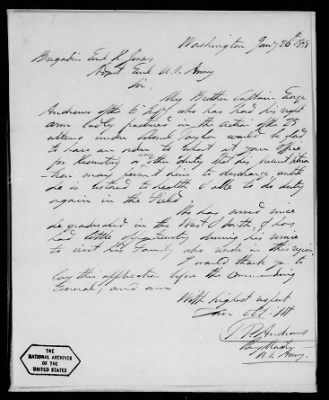 Washington Jany 26th 1838
Brigadier Genl R Jones
Adjt Genl U.S. Army
Sir.
My Brother Captain George
Andrews of the 6 Infy who has had his right
arm badly fractured in the action of the 25
ultimo under Colonel Taylor would be glad
to have an order to report at your office
for Recruiting or other duty that his present situa-
tion may permit him to discharge until
he is restored to health & able to do duty
again in the Field
He has served since
he graduated in the West & South, & has
had little opportunity during his service
to visit his Family who reside in this region
I would thank you to
lay this application before the Commanding
General, and am
With highest respect
Your Obt. St
T. P. Andrews
Paymaster
U.S. Army.
THE
NATIONAL ARCHIVES
OF THE
UNITED STATES